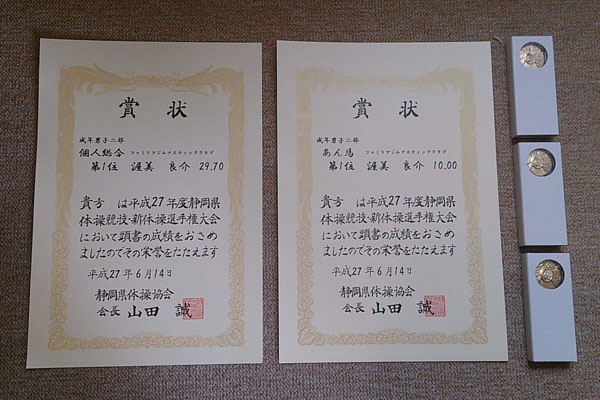 賞状
成年男子二部
個人総合 ファミリアジムナスティッククラブ
第1位 渥美 良介 29.70
貴方 は平成27年度静岡県
体操競技・新体操選手権大会
において頭書の成績をおさめ
ましたのでその栄誉をたたえます
平成27年6月14日
静岡県体操協会
会長 山田 誠
賞状
成年男子二部
あん馬 ファミリアジムナスティッククラブ
第1位 渥美 良介 10.00
貴方 は平成27年度静岡県
体操競技・新体操選手権大会
において頭書の成績をおさめ
ましたのでその栄誉をたたえます
平成27年6月14日
静岡県体操協会
会長 山田 誠